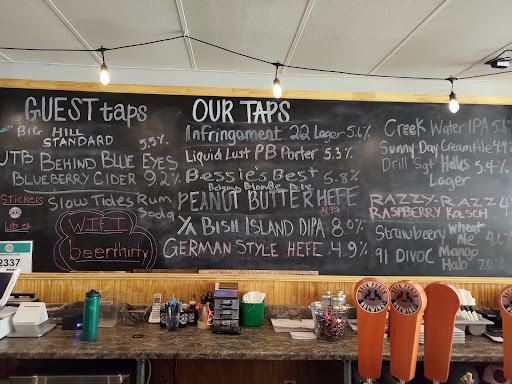 GUEST taps
BIG HILL
STANDARD 5.5%
UTB BEHIND BLUE EYES
BLUEBERRY CIDER 9.2%
Stickers
Slow Tides Rum
Soda
WIFI
beerthirty
2337
OUR TAPS
Infringement 22 Lager 5.6%
Liquid Lust PB Porter 5.3%
Bessie's Best 6.8%
Belgian Blonde
PEANUT BUTTER HEFE
4.9%
Ya BISH ISLAND DIPA
GERMAN STYLE HEFE 4.9%
Creek Water IPA
Sunny Day Cream Ale
Drill Sgt Helles 5.4%
Lager
RAZZ-Y-RAZZ
RASPBERRY KOLSCH
Strawberry Wheat
Ale
91 DIVOC Mango
Hab 7.0%